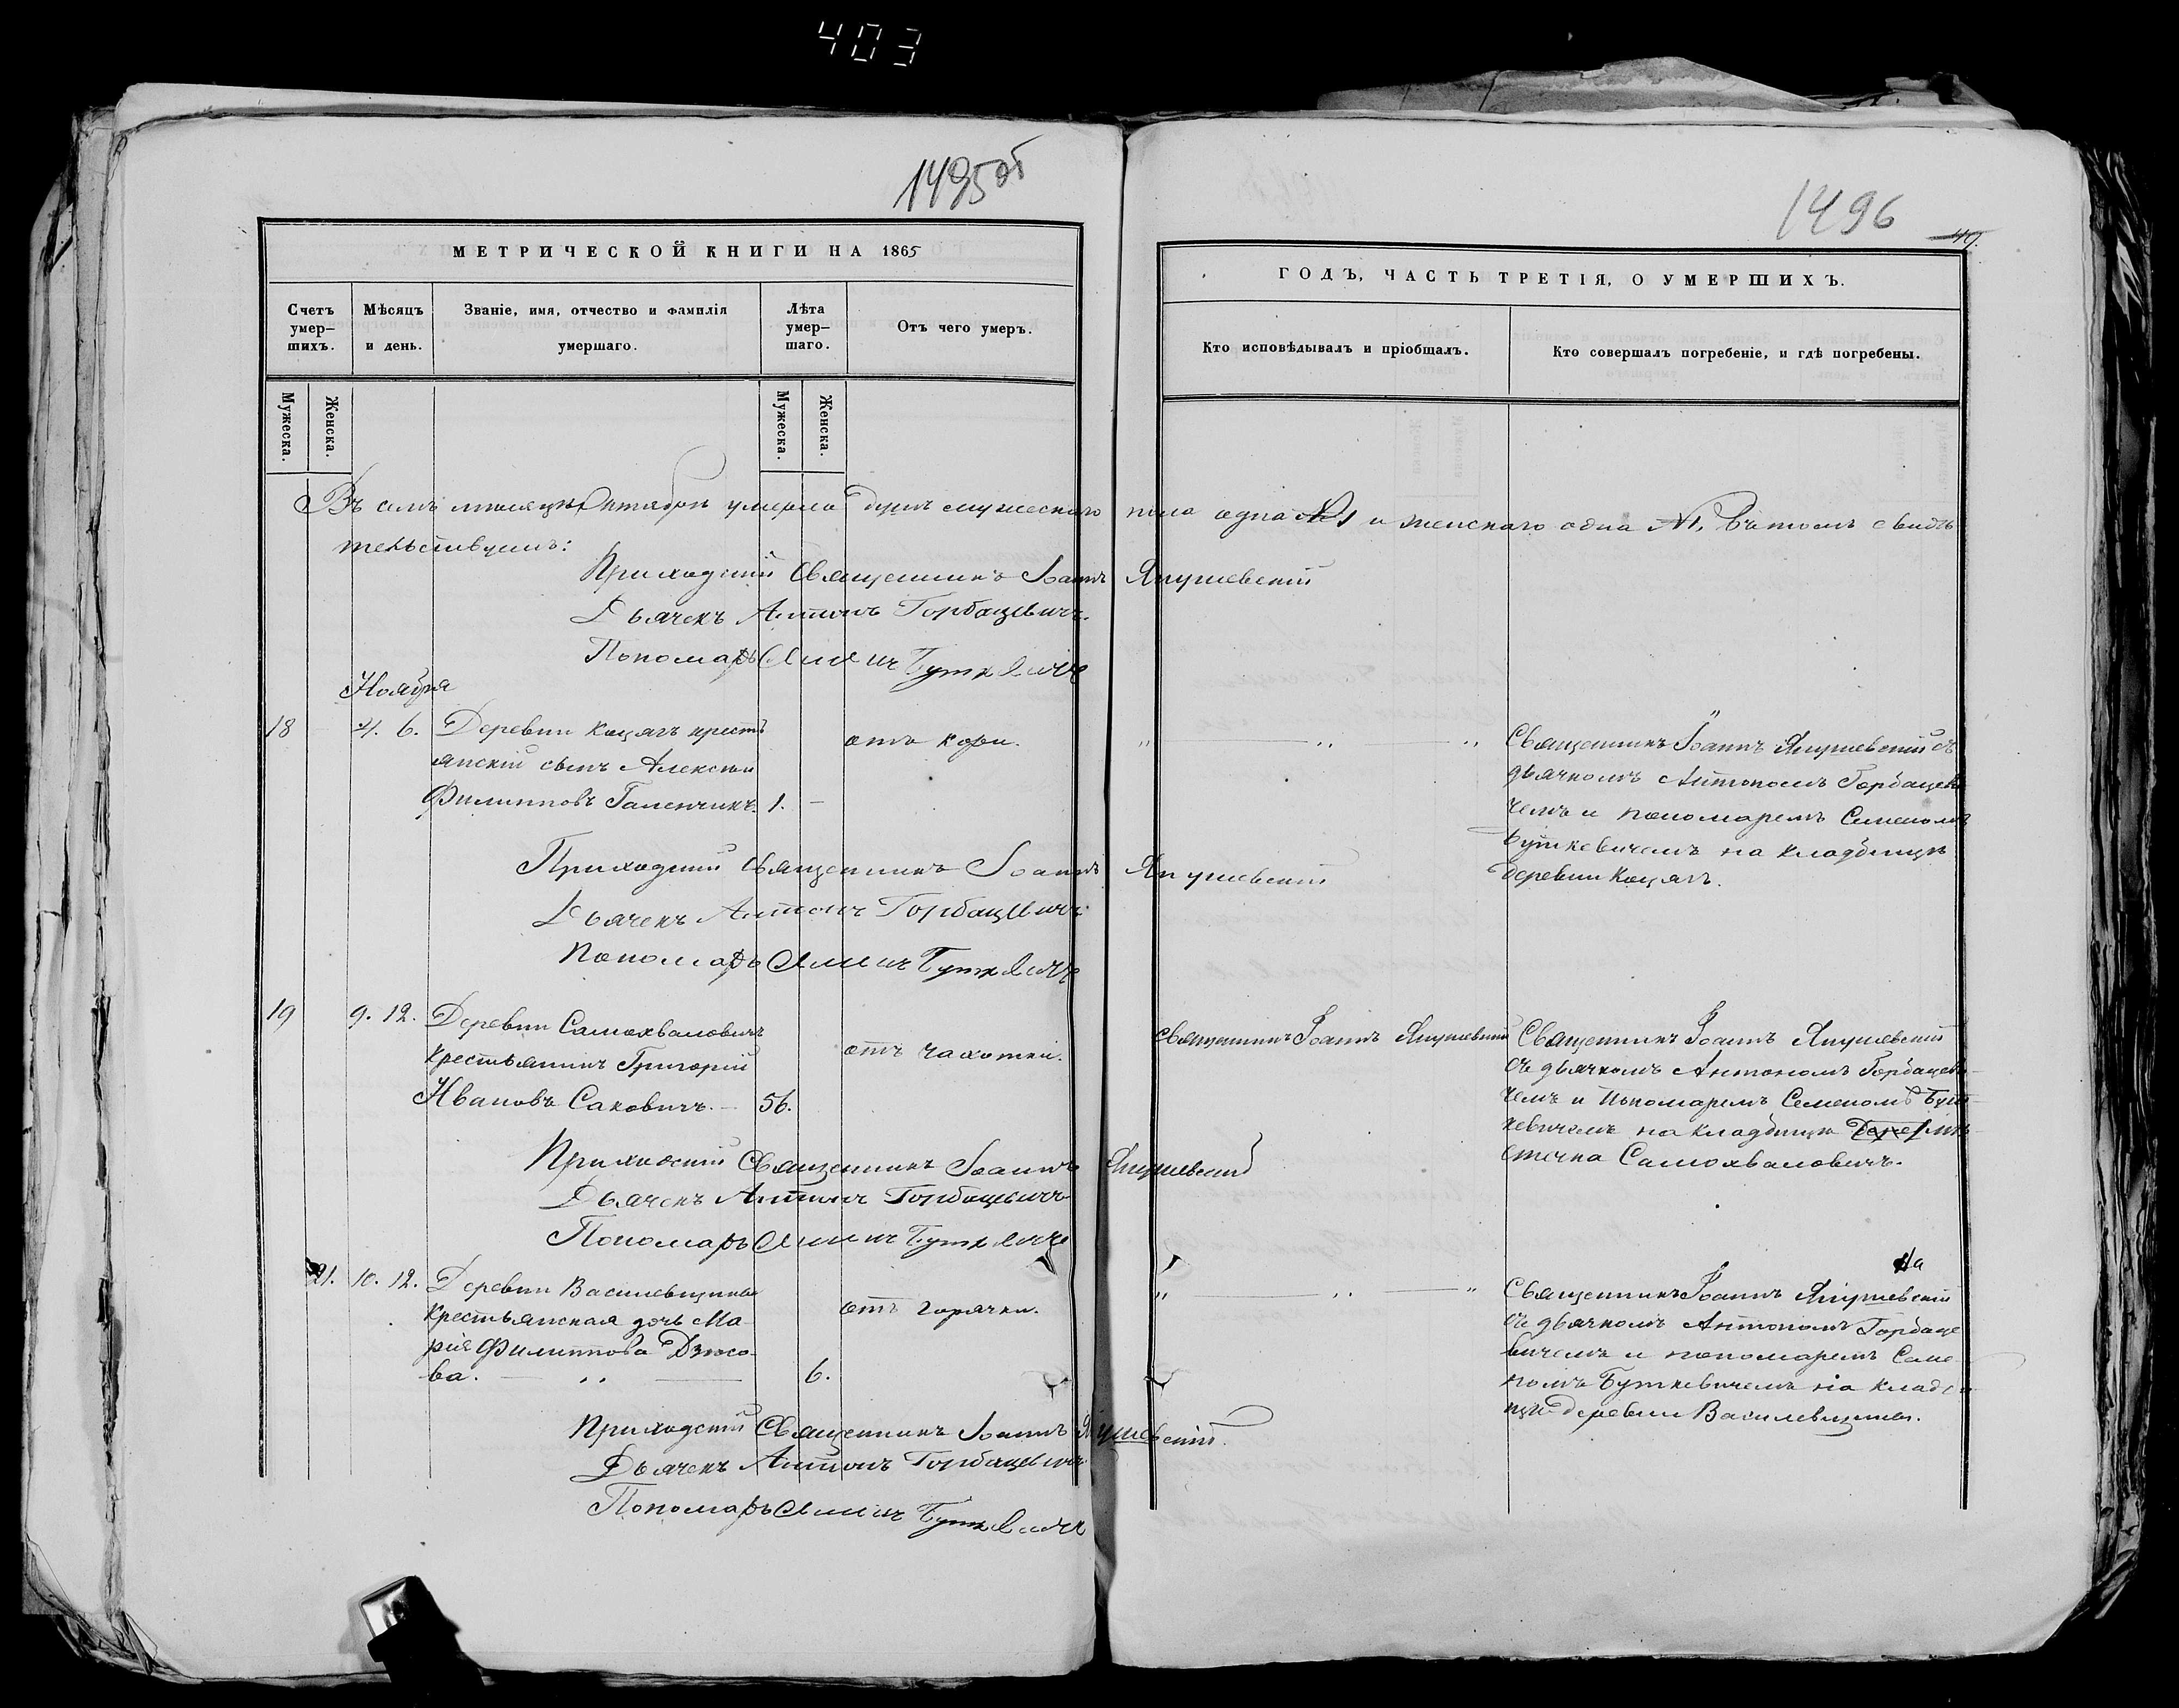 403
1495об
МЕТРИЧЕСКОЙ КНИГИ НА 1865
Счетъ умер-шихъ.
Мѣсяцъ и день.
Званіе, имя, отчество и фамилія умершаго.
Лѣта умер-шаго.
Отъ чего умеръ.
Мужеска.
Женска.
Мужеска.
Женска.
1496
49.
ГОДЪ, ЧАСТЬ ТРЕТІЯ, О УМЕРШИХЪ.
Кто исповѣдывалъ и пріобщалъ.
Кто совершалъ погребеніе, и гдѣ погребены.
Въ семъ мѣсяцѣ Октябрѣ умерло душъ мужескаго пола одна №1 и женскаго одна №1, въ томъ свидѣ
тельствуемъ:
Приходскій Священникъ Іоаннъ Янушевскій
Дьячекъ Антонъ Горбацевичъ.
Пономарь Семенъ Буткевичъ
Ноября
18 4. 6. Деревни Коцягъ кресть
янскій сынъ Алексѣй
Филипповъ Галенчикъ. 1. —
отъ кори.
„ — „ — „
Священникъ Іоаннъ Янушевскій съ
дьячкомъ Антономъ Горбацеви
чемъ и пономаремъ Семеномъ
Буткевичемъ на кладбищѣ
деревни Коцягъ.
Приходскій Священникъ Іоаннъ Янушевскій
Дьячекъ Антонъ Горбацевичъ
Пономарь Семенъ Буткевичъ
19 9. 12. Деревни Самохваловичъ
крестьянинъ Григорій
Ивановъ Саковичъ. — 56.
отъ чахотки.
Священникъ Іоаннъ Янушевскій
Священникъ Іоаннъ Янушевскій
съ дьячкомъ Антономъ Горбацеви-
чемъ и Пономаремъ Семеномъ Бут-
кевичемъ на кладбищѣ мѣ-
стечка Самохваловичъ.
Приходскій Священникъ Іоаннъ Янушевскій
Дьячекъ Антонъ Горбацевичъ
Пономарь Семенъ Буткевичъ
21. 10. 12. Деревни Василевщины
крестьянская дочь Ма-
рія Филиппова Дзюсо-
ва. — „ — 6.
отъ горячки.
„ — „ — „
Священникъ Іоаннъ Янушевскій
съ дьячкомъ Антономъ Горбаце
вичемъ и пономаремъ Семе
номъ Буткевичемъ на кладби
щѣ деревни Василевщины.
Приходскій Священникъ Іоаннъ Янушевскій.
Дьячекъ Антонъ Горбацевичъ
Пономарь Семенъ Буткевичъ